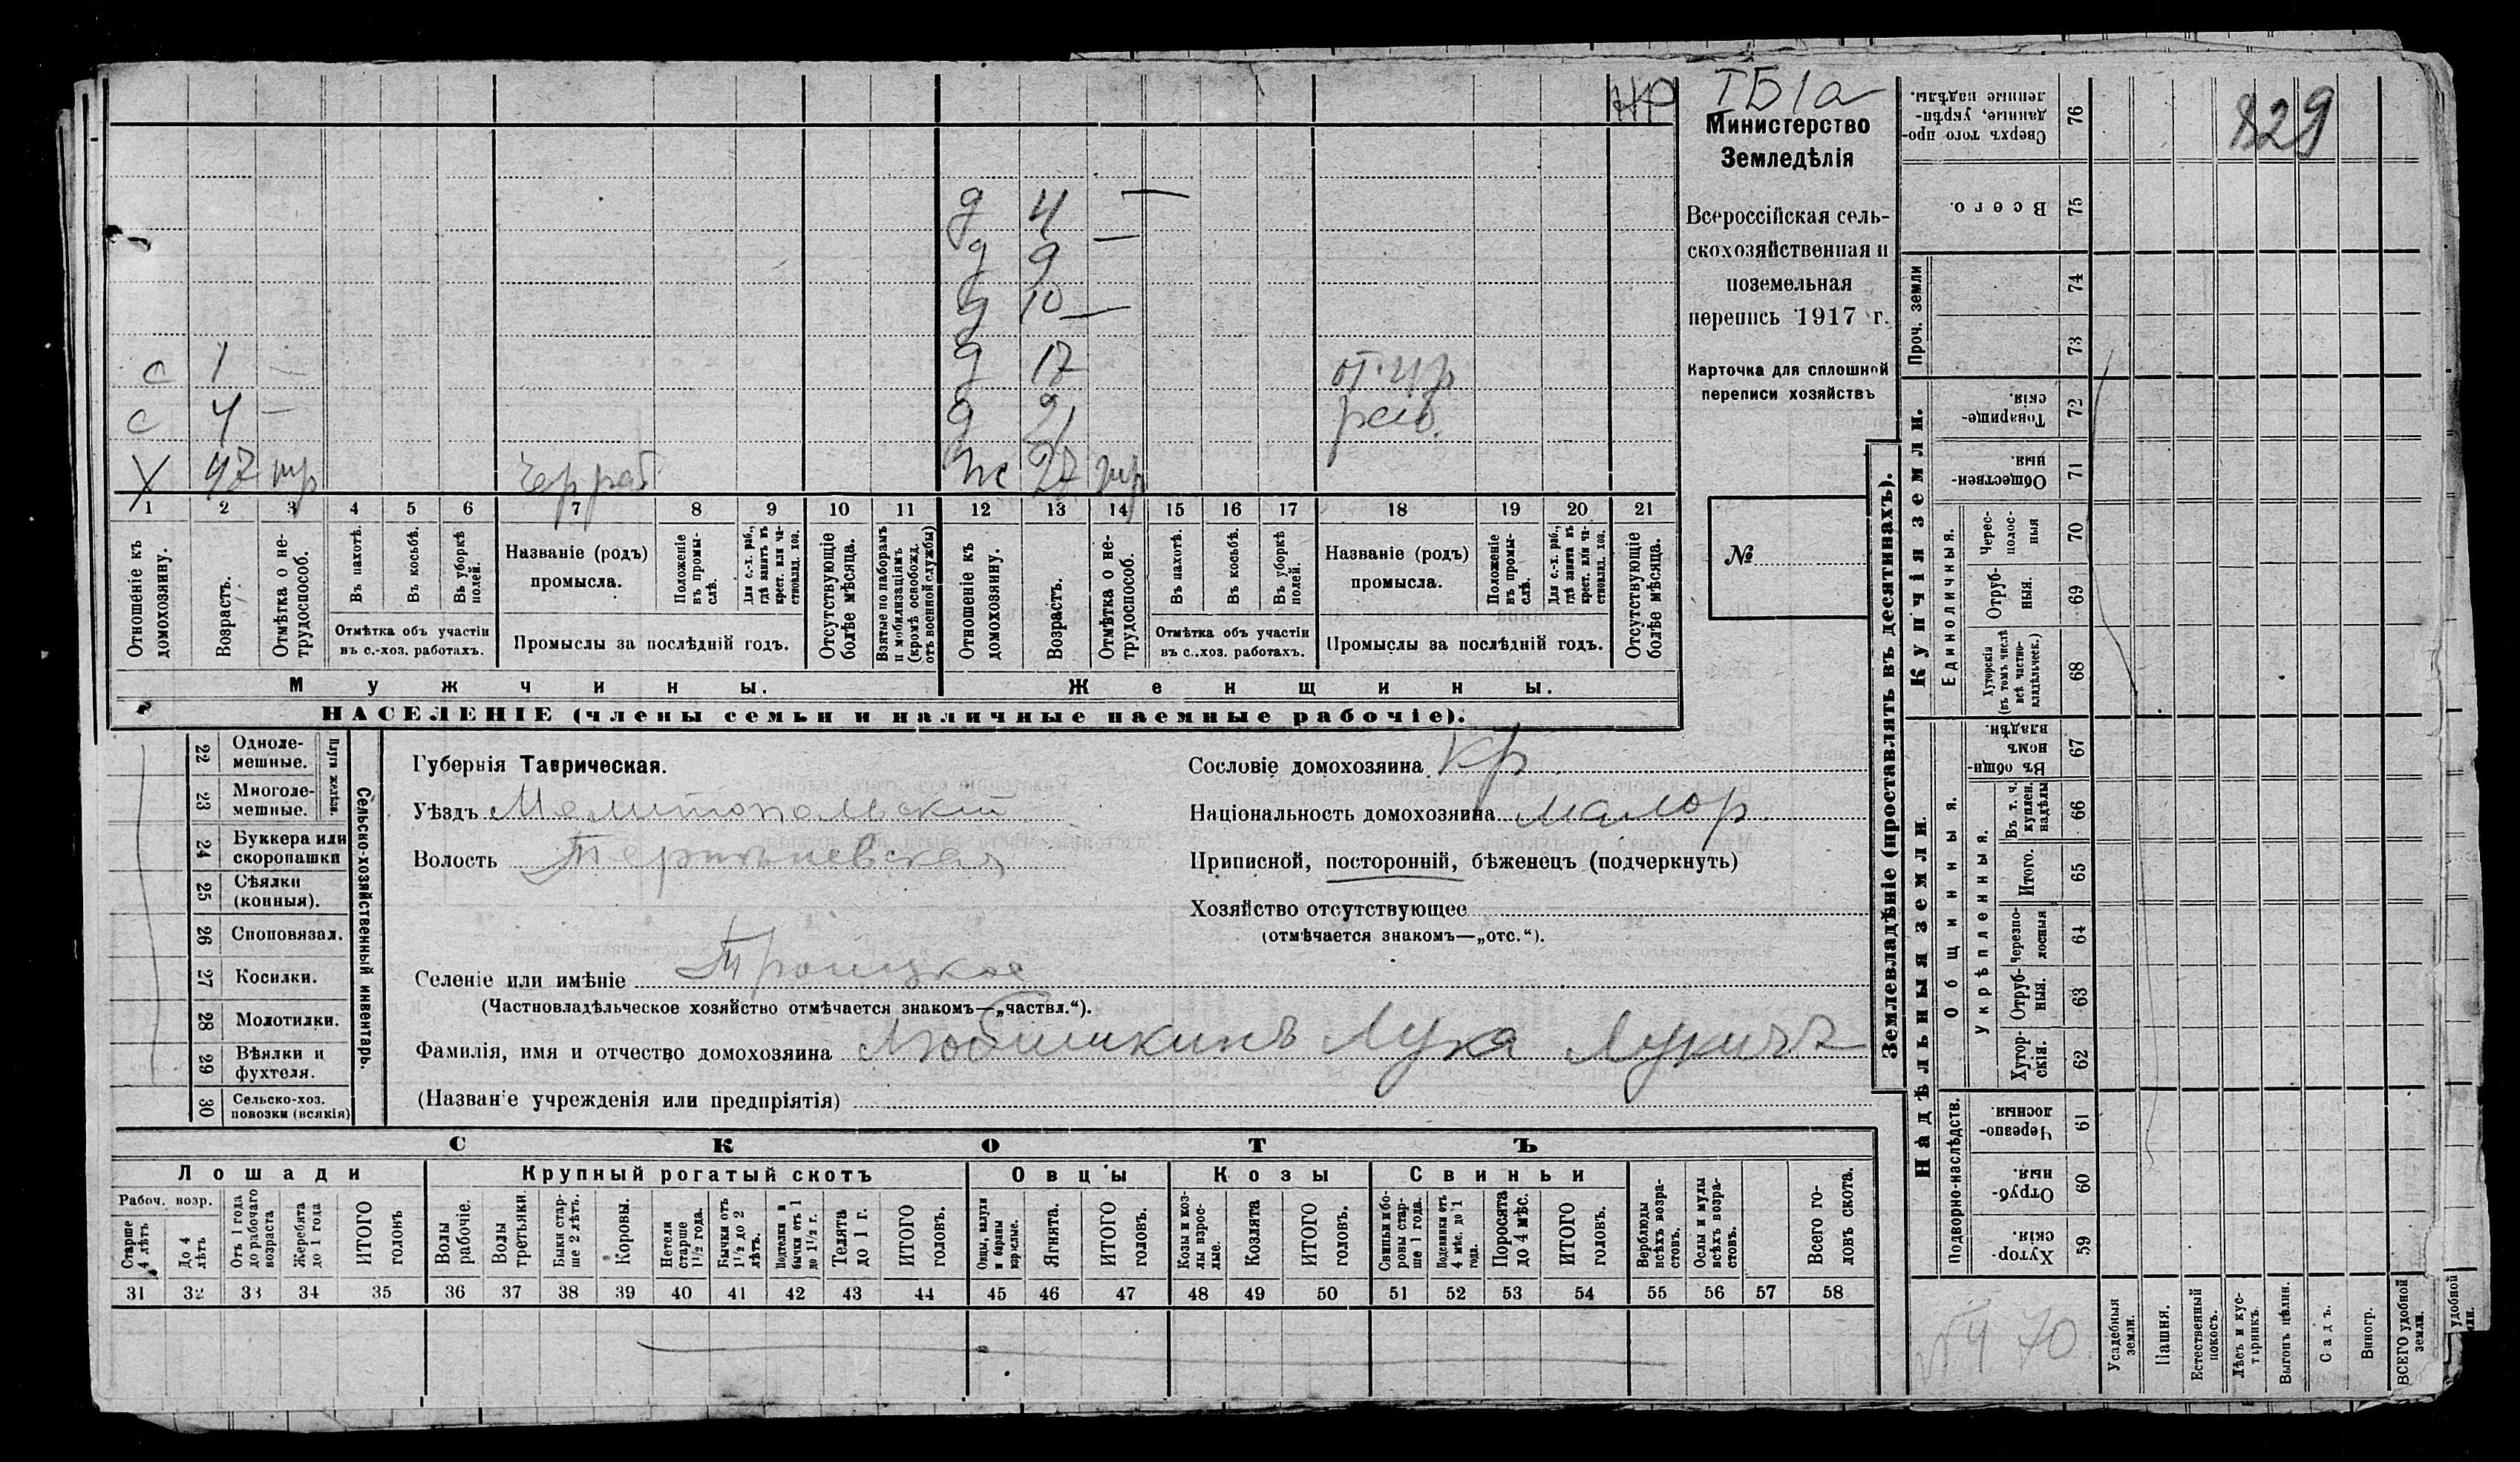 НР
IБ1а
829
Министерство
Земледѣлія
Всероссійская сель-
скохозяйственная и
поземельная
перепись 1917 г.
Карточка для сплошной
переписи хозяйствъ
№
д 4 —
д 9 —
д 10 —
с 1 — д 17
с 4 — д 21
Х 47 тр чер раб ж 27 тр
1 2 3 4 5 6 7 8 9 10 11 12 13 14 15 16 17 18 19 20 21
Отношеніе къ домохозяину.
Возрастъ.
Отмѣтка о не-трудоспособ.
Въ пахотѣ.
Въ косьбѣ.
Въ уборкѣ полей.
Отмѣтка объ участіи
въ с.-хоз. работахъ.
Названіе (родъ)
промысла.
Положеніе въ промы-слѣ.
Для с.-х. раб., гдѣ занятъ въ крест. или ча-стновлад. хоз.
Промыслы за послѣдній годъ.
Отсутствующіе болѣе мѣсяца.
Взятые по наборамъ и мобилизаціямъ (кромѣ освобожд. отъ военной службы)
Отношеніе къ домохозяину.
Возрастъ.
Отмѣтка о не-трудоспособ.
Въ пахотѣ.
Въ косьбѣ.
Въ уборкѣ полей.
Отмѣтка объ участіи
въ с..хоз. работахъ.
Названіе (родъ)
промысла.
Положеніе въ промы-слѣ.
Для с.-х. раб., гдѣ занята въ крест. или ча-стновлад. хоз.
Промыслы за послѣдній годъ.
Отсутствующіе болѣе мѣсяца.
Мужчины. Женщины.
НАСЕЛЕНІЕ (члены семьи и наличные наемные рабочіе).
Сельско-хозяйственный инвентарь.
Плуги желѣзн.
22 Одноле-мешные.
23 Многоле-мешные.
24 Буккера или скоропашки
25 Сѣялки (конныя).
26 Сноповязал.
27 Косилки.
28 Молотилки.
29 Вѣялки и фухтеля.
30 Сельско-хоз. повозки (всякія)
Губернія Таврическая.
Уѣздъ Мелитопольскій
Волость Терпеньевская
Селеніе или имѣніе Троицкое
(Частновладѣльческое хозяйство отмѣчается знакомъ—„частвл.“).
Фамилія, имя и отчество домохозяина Любишкинъ Лука Лукичъ
(Названіе учрежденія или предпріятія)
Сословіе домохозяина кр
Національность домохозяина малор.
Приписной, посторонній, бѣженецъ (подчеркнуть)
Хозяйство отсутствующее
(отмѣчается знакомъ—„отс.“).
СКОТЪ
Лошади Крупный рогатый скотъ Овцы Козы Свиньи
Рабоч. возр.
Старше 4 лѣтъ
До 4 лѣтъ
Отъ 1 года до рабочаго возраста
Жеребята до 1 года
ИТОГО головъ
Волы рабочіе.
Волы третьяки.
Быки стар-ше 2 лѣтъ.
Коровы.
Нетели старше 1½ года.
Бычки отъ 1½ до 2 лѣтъ.
Подтелки и бычки отъ 1 до 1½ г.
Телята до 1 г.
ИТОГО головъ.
Овцы, валухи и бараны взрослые.
Ягнята.
ИТОГО головъ.
Козы и коз-лы взрос-лые.
Козлята
ИТОГО головъ.
Свиньи и бо-ровы стар-ше 1 года.
Подсвинки отъ 4 мѣс. до 1 года.
Поросята до 4 мѣс.
ИТОГО головъ.
Верблюды всѣхъ возра-стовъ.
Ослы и мулы всѣхъ возра-стовъ.
Всего го-ловъ скота.
31 32 33 34 35 36 37 38 39 40 41 42 43 44 45 46 47 48 49 50 51 52 53 54 55 56 57 58
Землевладѣніе (проставлять въ десятинахъ).
Сверхъ того про-данные, укрѣп-ленные надѣлы. 76
Всего. 75
Проч. земли 74 73
Купчія земли.
Товарище-скія. 72
Обществен-ныя. 71
Единоличныя.
Черес-полос-ныя 70
Отруб-ныя. 69
Хуторскія (въ томъ числѣ всѣ частно-владѣльческ.) 68
Надѣльныя земли.
Общинныя.
Въ общин-номъ владѣн. 67
Укрѣпленныя.
Въ т. ч. куплен. надѣлы 66
Итого. 65
Черезпо-лосныя 64
Отруб-ныя. 63
Хутор-скія. 62
Подворно-наслѣдств.
Черезпо-лосныя. 61
Отруб-ныя. 60
Хутор-скія. 59
Усадебныя земли.
Пашня.
Естественный покосъ.
Лѣсъ и кус-тарникъ.
Выгонъ цѣлин.
Садъ.
Виногр.
ВСЕГО удобной земли.